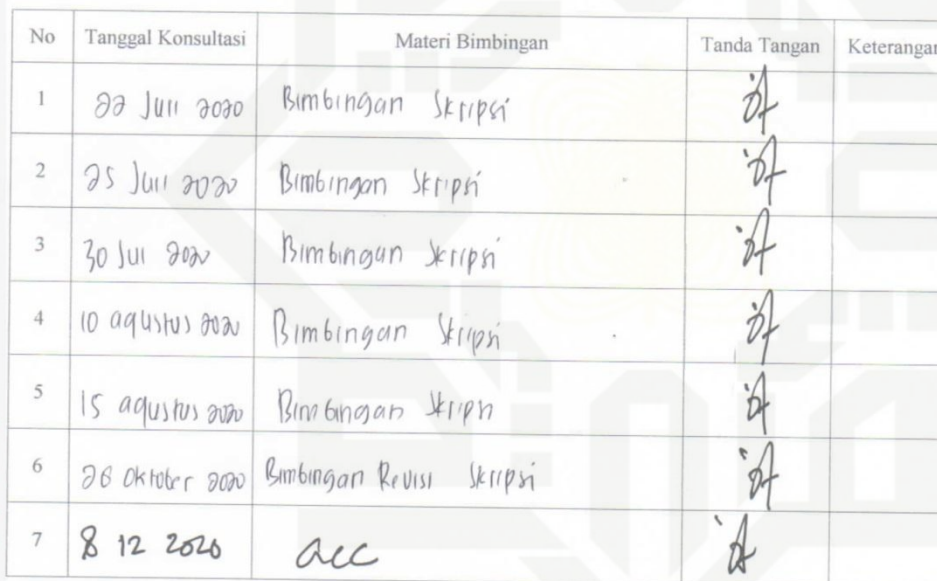 No Tanggal Konsultasi Materi Bimbingan Tanda Tangan Keterangan
1 22 Juli 2020 Bimbingan Skripsi
2 25 Juli 2020 Bimbingan Skripsi
3 30 Juli 2020 Bimbingan Skripsi
4 10 agustus 2020 Bimbingan Skripsi
5 15 agustus 2020 Bimbingan Skripsi
6 26 Oktober 2020 Bimbingan Revisi Skripsi
7 8 12 2020 acc